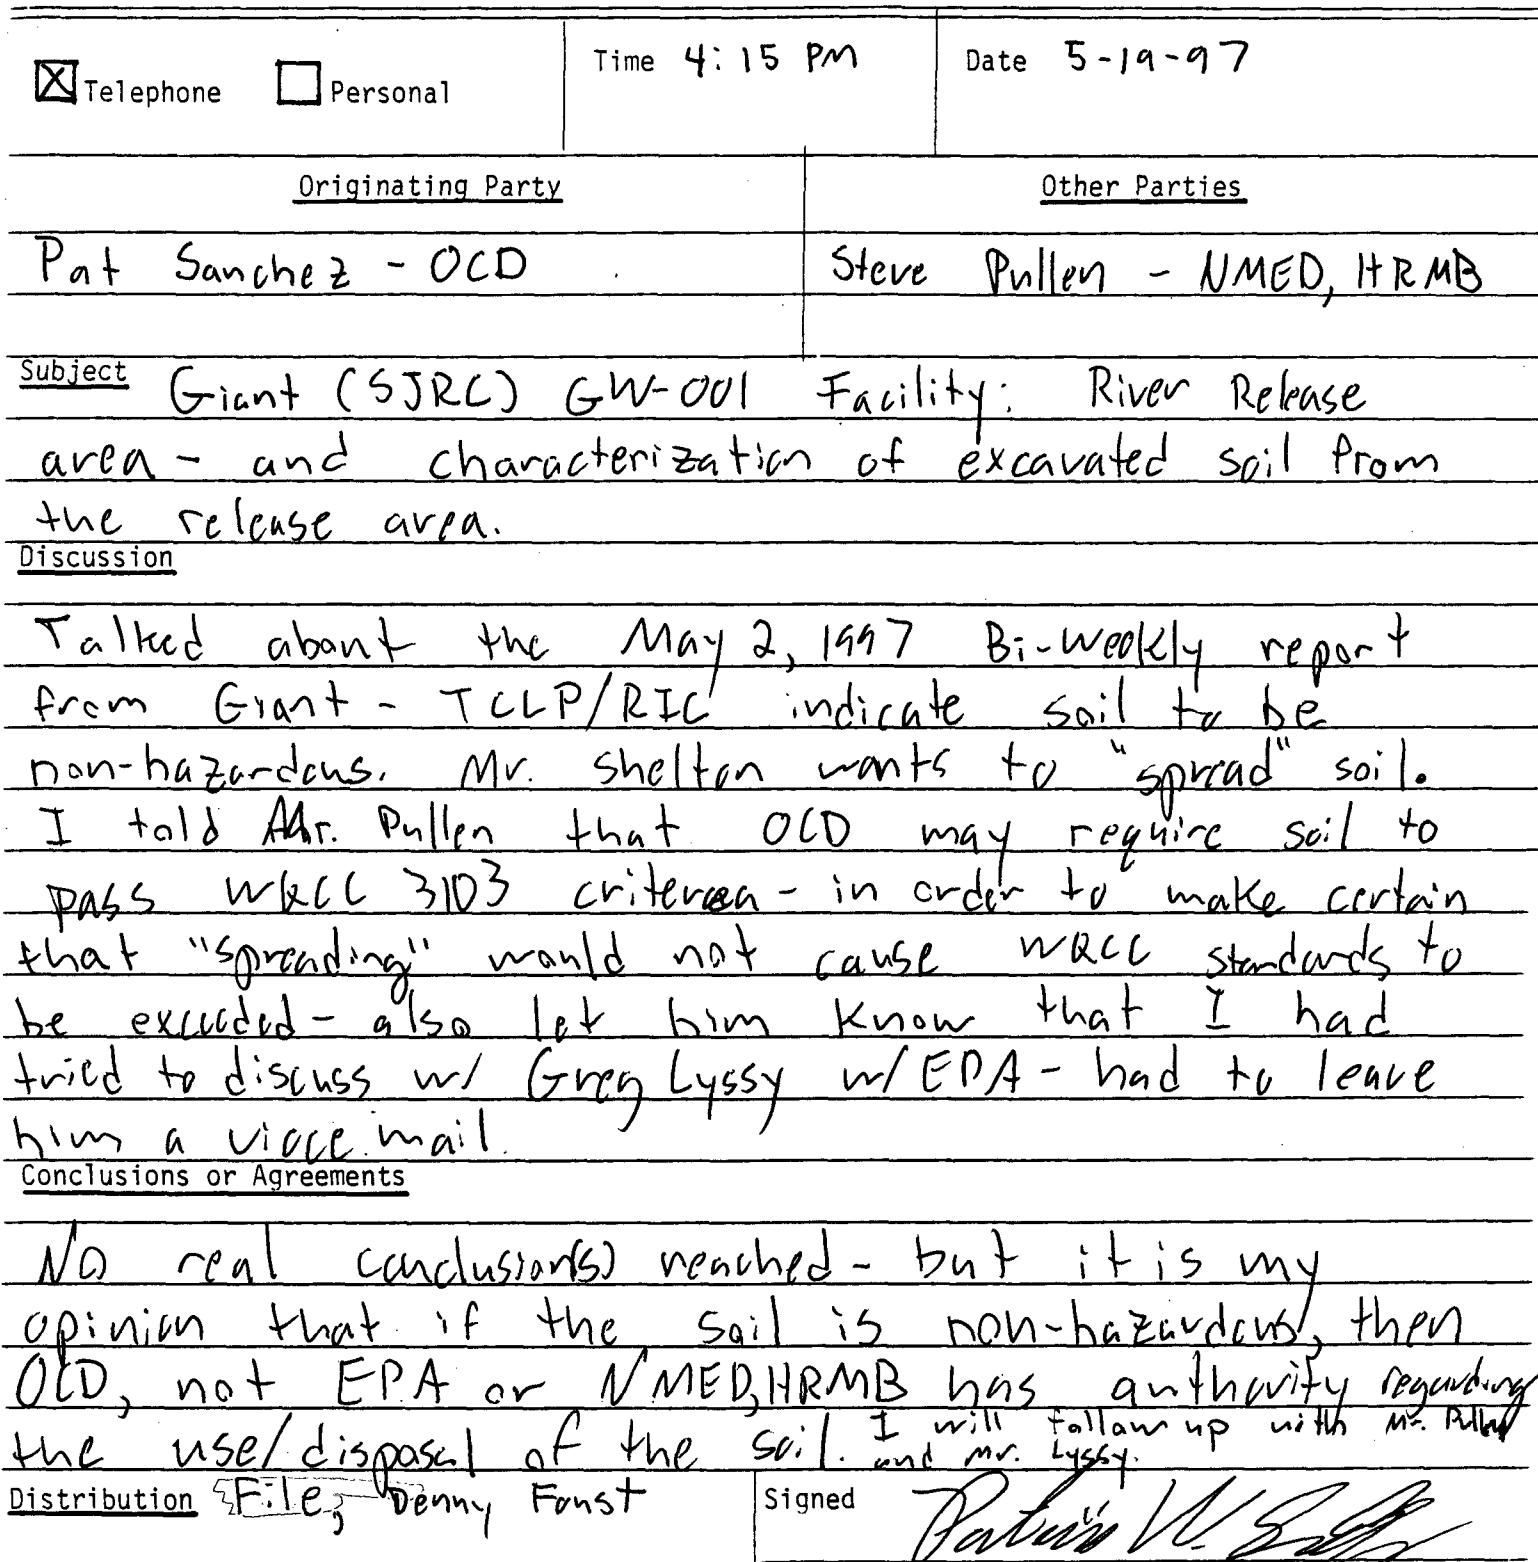 Telephone Personal Time 4:15 PM Date 5-19-97
Originating Party Other Parties
Pat Sanchez - OCD Steve Pullen - NMED, HRMB
Subject Giant (SJRC) GW-001 Facility: River Release
area - and characterization of excavated soil from
the release area.
Discussion
Talked about the May 2, 1997 Bi-weekly report
from Giant - TCLP/RIC indicate soil to be
non-hazardous. Mr. Shelton wants to "spread" soil.
I told Mr. Pullen that OCD may require soil to
pass WQCC 3103 criterea - in order to make certain
that "spreading" would not cause WQCC standards to
be exceeded - also let him know that I had
tried to discuss w/ Greg Lyssy w/ EPA - had to leave
him a vioce mail.
Conclusions or Agreements
No real conclusion(s) reached - but it is my
opinion that if the soil is non-hazardous, then
OCD, not EPA or NMED, HRMB has authority regarding
the use/disposal of the soil. I will follow up with Mr. Pullen
and Mr. Lyssy.
Distribution File, Denny Foust Signed